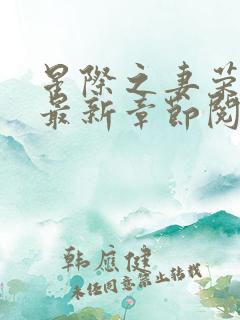 星際之妻榮
最新章節閱
韩應健
未经同意禁止转载